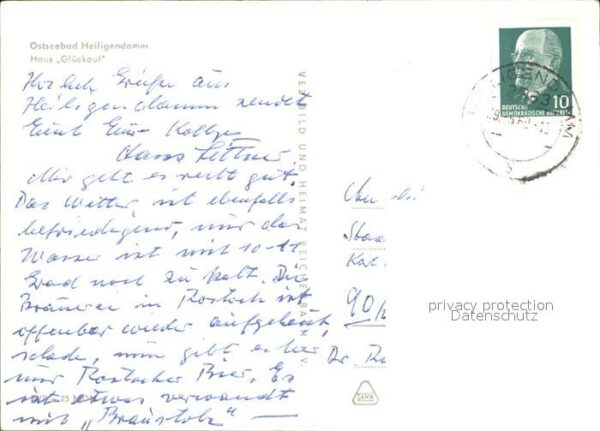 Ostseebad Heiligendamm
Haus „Glückauf"
Herzlich Grüße aus
Heiligendamm sendet
Euch Euer Kollege
Hans
Mir geht es recht gut.
Das Wetter ist ebenfalls
befriedigend, nur das
Wasser ist mit 10-11
Grad noch zu kalt. Die
Brauerei in Rostock ist
offenbar wieder aufgebaut,
schade, nun gibt es hier
nur Rostocker Bier. Es
ist etwas verwandt
mit „Braustolz" —
VERLAG BILD UND HEIMAT REICHENBACH I. V.
10
DEUTSCHE
DEMOKRATISCHE REPUBLIK
HEILIGENDAMM
90/
Dr.
privacy protection
Datenschutz